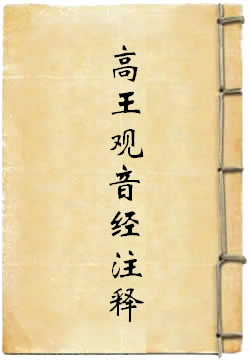 高王观音经注释